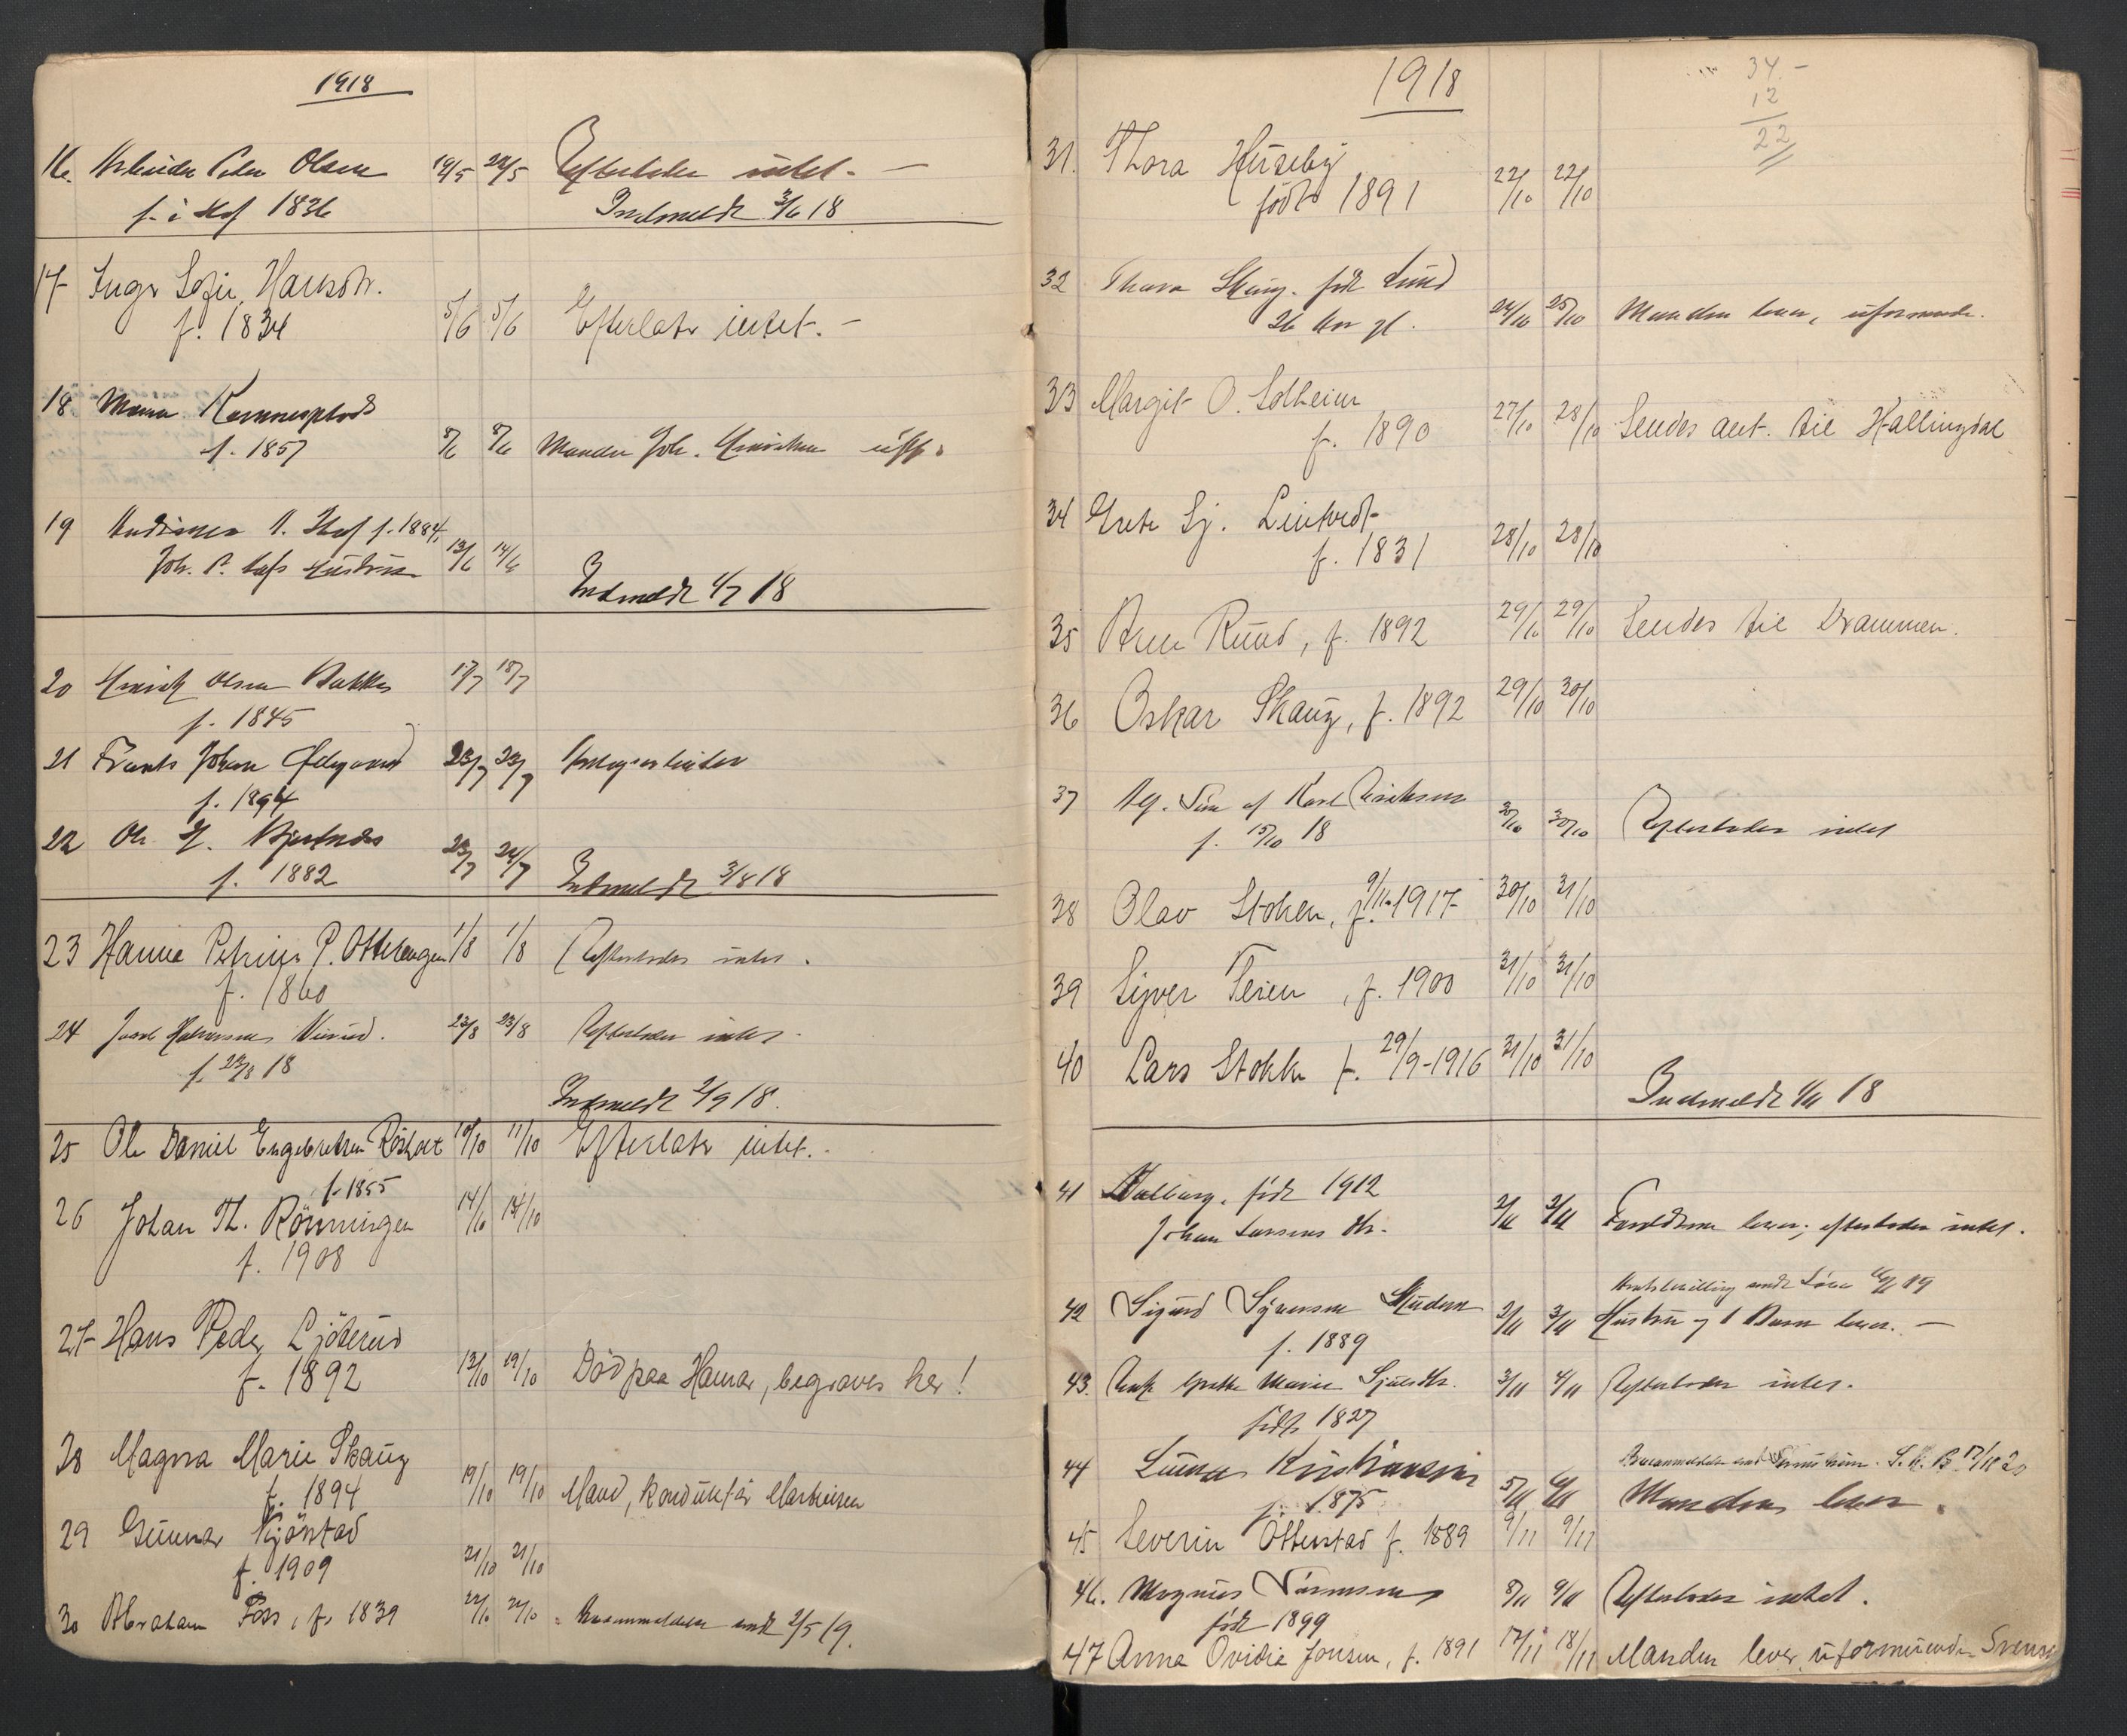 1918
16. Arbeider Peder Olsen 19/5 22/5 Efterlader intet. –
f. i Hof 1836 Indmeldt 3/6 18
17 Inger Sofie Hansdtr.
f. 1834 5/6 5/6 Efterlatr intet. –
18 Maren
f. 1857 8/6 8/6 Manden Joh.
19 A. Hof f. 1884,
Joh. P. Hofs Hustru 13/6 14/6
Indmeldt 1/7 18
20 Olsen Bakke 17/7 18/7
f. 1845
21 Frants Johan Ødegaard 23/7 23/7 Anlægsarbeider
f. 1894
22 Ole H. 23/7 24/7
f. 1882 Indmeldt 3/8 18
23 Hanne Petrine P. Ottelengen 1/8 1/8 Efterlader intet.
f. 1860
24 Halvorsen 23/8 23/8 Efterlader intet.
f. 18
Indmeldt 2/9 18.
25 Ole Daniel Engebretsen Røsholt 10/10 11/10 Efterlatr intet.
f. 1855
26 Johan Th. Rönningen 14/10 14/10
f. 1908
27 Hans Peder Ljöterud
f. 1892 13/10 19/10 Död paa Hamar, begraves her!
28 Magna Marie Skaug
f. 1894 19/10 19/10 Mand, konduktör Martinsen
29 Gunnar Kjönstad
f. 1909 21/10 21/10
30 Abraham Foss, f. 1839 22/10 22/10 sendt 2/5 19.
1918
34.–
12
22
31. Thora Huseby
födt 1891 22/10 22/10
32 Thora Skaug. født Lund
26 Aar gl. 24/10 25/10 Manden lever, uformuende.
33 Margit O. Solheim
f. 1890 27/10 28/10 Sendes ant. til Hallingdal
34 Grete Sj. Lintvedt
f. 1831 28/10 28/10
35 Arne Ruud, f. 1892 29/10 29/10 Sendes til Drammen.
36 Oskar Skaug, f. 1892 29/10 30/10
37 Ug. Søn af Karl Eriksen
f. 15/10 18 30/10 30/10 Efterlader intet
38 Olav Stoken, f. 9/11 1917 30/10 31/10
39 Syver Teien, f. 1900 31/10 31/10
40 Lars Stokke f. 29/9-1916 31/10 31/10
Indmeldt 1/11 18
41 Valborg, født 1912
Johan Larsens dtr. 2/11 2/11 Forældrene lever; efterlader intet.
19
42 Sigurd Syversen 2/11 3/11 Hustru og 1 Barn lever. –
f. 1889
43. Enke Grethe Marie 3/11 4/11 Efterlader intet.
født 1827
S. K. B. 17/12 20
44 Kristiansen
f. 1875 5/11 6/11 Manden lever.
45 Severin Otterstad f. 1889 9/11 9/11
46. Magnus 8/11 9/11 Efterlader intet.
født 1899
47 Anna Ovidia Jonsen, f. 1891 17/11 18/11 Manden lever, uformuende Svensk